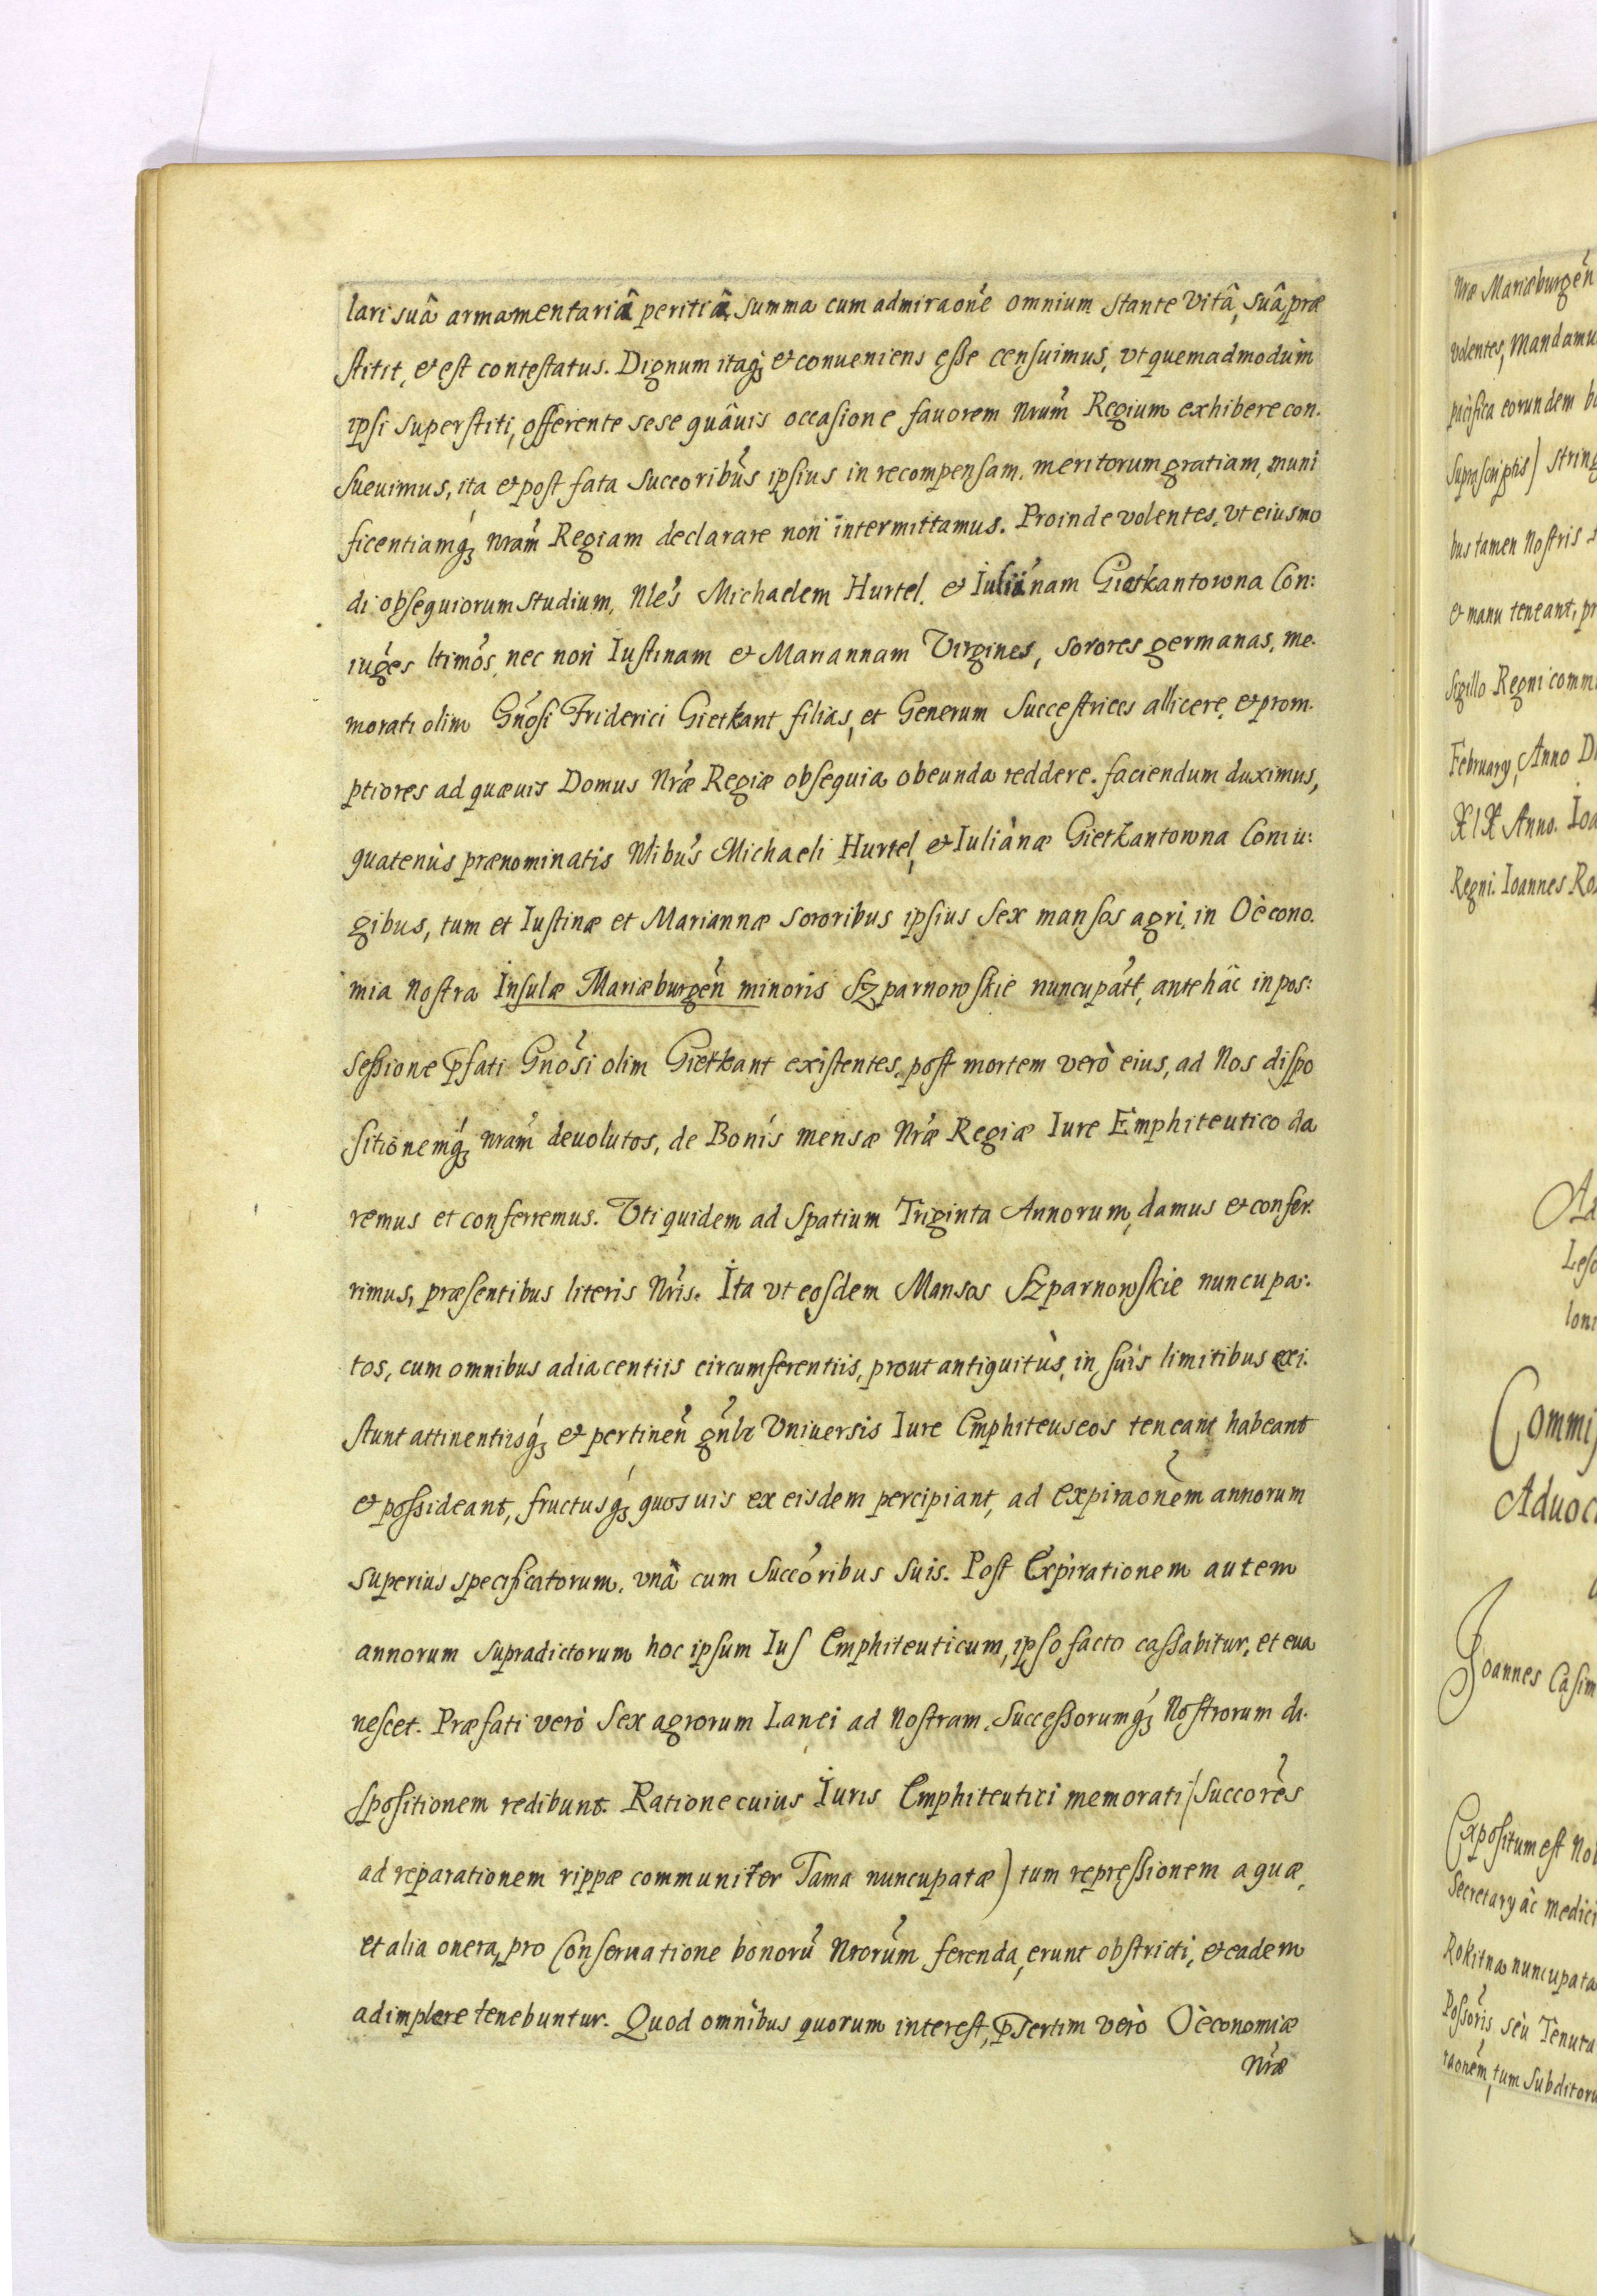 lari suâ armamentariâ peritiâ, summa cum admiraone omnium stante Vitâ, suâ, præ
stitit, et est contestatus. Dignum itaq; et conueniens esse censuimus, vt quemadmodùm
ipsi superstiti, offerente sese quâuis occasione fauorem Nrum Regium exhibere con.
sueuimus, ita et post fata succoribus ipsius in recompensam, meritorum gratiam, muni
ficentiamq; nram Regiam declarare non intermittamus. Proinde volentes, vt eiusmo
di obsequiorum studium, Nles Michaelem Hurtel, et Iuliänam Gietkantowna Con:
iuges ltimos, nec non Iustinam et Mariannam Virgines, sorores germanas, me.
morati olim Gnosi Friderici Gietkant filias, et Generum Succestrices allicere, et prom.
ptiores ad quæuis Domus Nræ Regiæ obsequia obeunda reddere. faciendum duximus,
quatenùs prænominatis Nlibus Michaeli Hurtel, et Iuliànæ Gietkantowna Coniu:
gibus, tum et Iustinæ et Mariannæ sororibus ipsius Sex mansos agri, in Oècono.
mia Nostra Insulæ Mariæburgen minoris Szparnowskie nuncupatt, antehâc in pos:
sessione pfati Gnosi olim Gietkant existentes, post mortem verò eius, ad Nos dispo
sitionemq; nram deuolutos, de Bonis mensæ Nræ Regiæ Iure Emphiteutico da
remus et conferremus. Vti quidem ad Spatium Triginta Annorum, damus et confer.
rimus, præsentibus literis Nris. Ita vt eosdem Mansos Szparnowskie nuncupa:
tos, cum omnibus adiacentiis circumferentiis, prout antiquitùs, in suis limitibus exi.
stunt attinentiisq; et pertinen gnlr Vniuersis Iure Emphiteuseos teneant habeant
et possideant, fructusq; quosuis ex eisdem percipiant, ad expiraonem annorum
superius specificatorum, vnâ cum Succoribus suis. Post Expirationem autem
annorum supradictorum hoc ipsum Ius Emphiteuticum, ipso facto cassabitur, et eua
nescet. Præfati verò Sex agrorum Lanei ad Nostram, Successorumq; Nostrorum di.
spositionem redibunt. Ratione cuius Iuris Emphiteutici memorati (Succores
ad reparationem rippæ communiter Tama nuncupatæ) tum repressionem aquæ,
et alia onera, pro Conseruatione bonoru Nrorum ferenda, erunt obstricti, et eadem
adimplere tenebuntur. Quod omnibus quorum interest, psertim verò Oèconomiæ
Nræ
Nræ Mariæburgen
volentes, Mandamu
pacifica eorundem
suprascriptis) string
bus tamen Nostris
et manu teneant,
Sigillo Regni comm
February, Anno
XIX Anno.
Regni. Ioannes
Commis
Aduoc
Joannes Casim
Expositum est
Secretary ac medici
Rokitna nuncupata
Possoris seu Tenuta
raonem, tum Subditoru